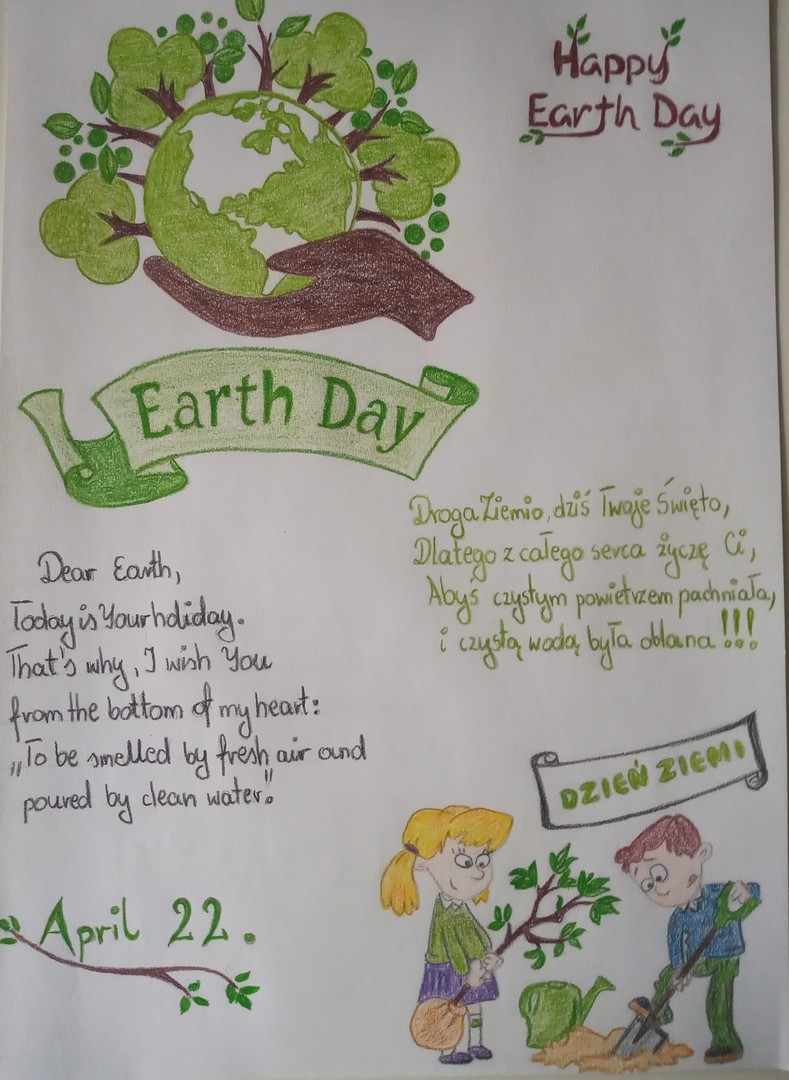 Happy
Earth Day
Earth Day
Droga Ziemio, dziś Twoje Święto,
Dlatego z całego serca życzę Ci,
Abyś czystym powietrzem pachniała,
i czystą wodą była oblana!!!
Dear Earth,
Today is Your holiday.
That's why, I wish You
from the bottom of my heart:
„To be smelled by fresh air and
poured by clean water."
DZIEŃ ZIEMI
April 22.